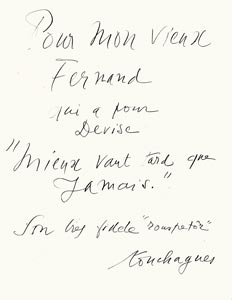 Pour Mon Vieux
Fernand
qui a pour
Devise
"Mieux vaut tard que
Jamais."
Son très fidèle "rouspetor"
Touchagues